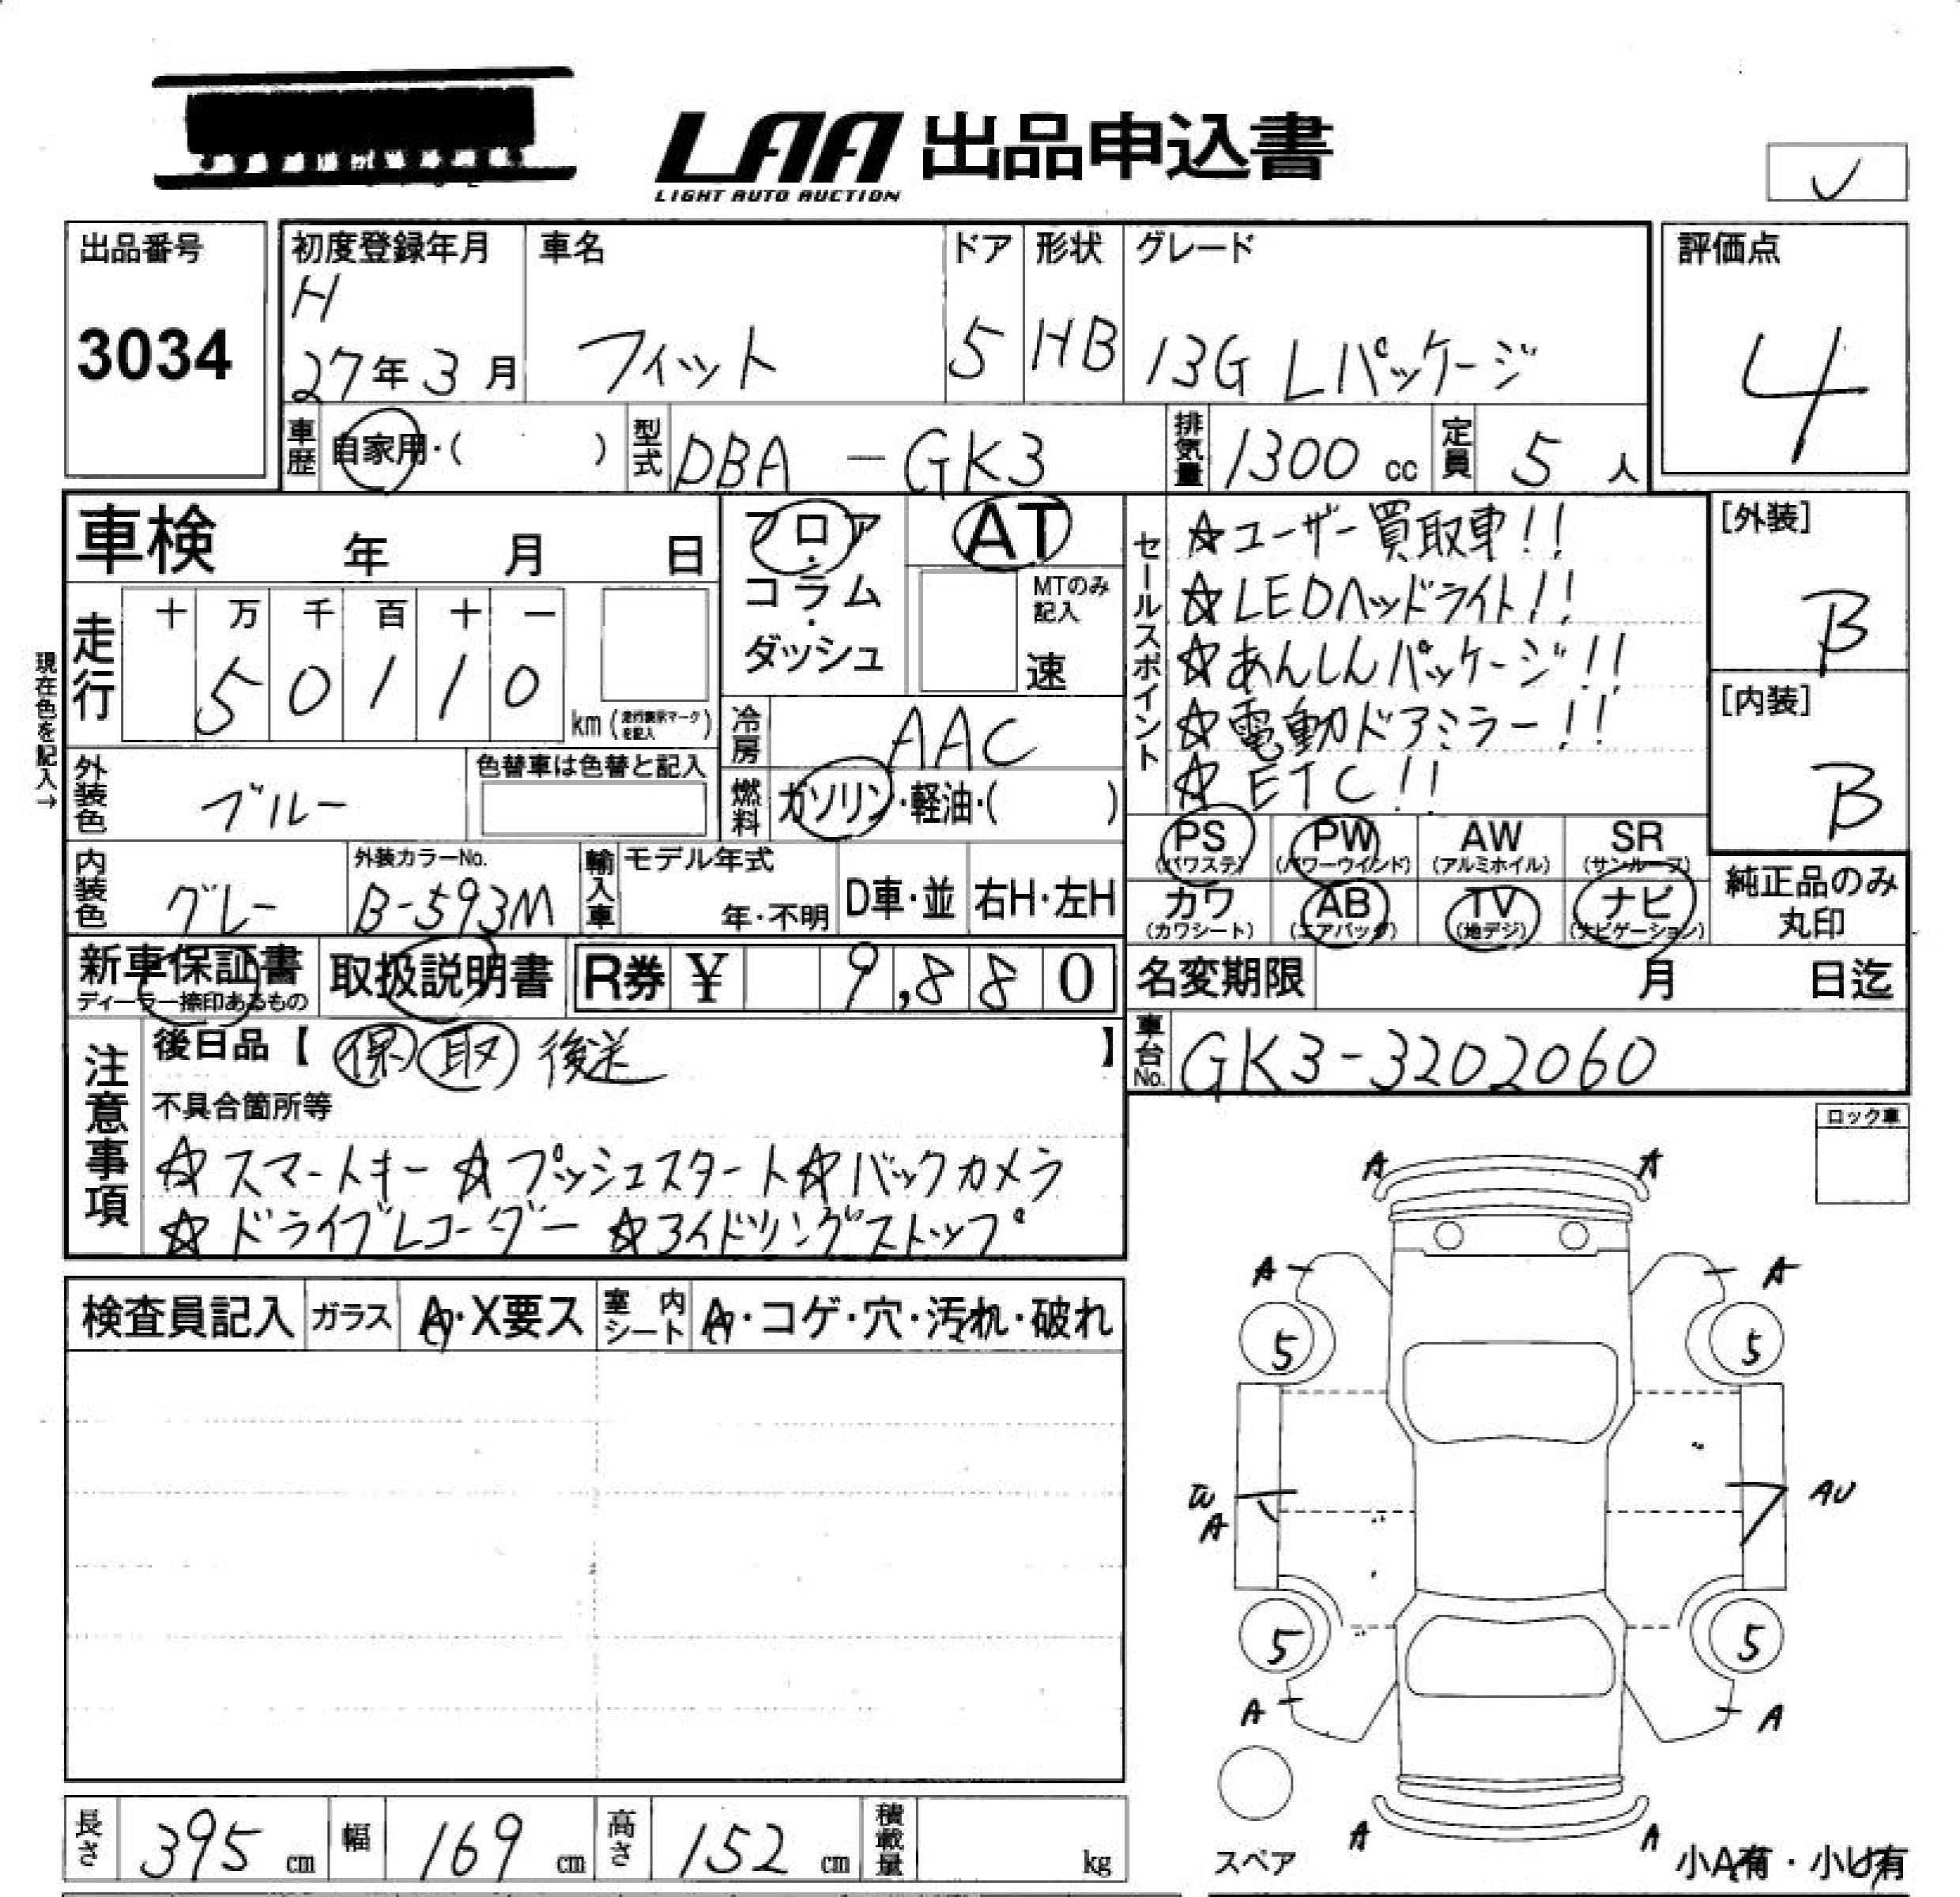 LAA 出品申込書
LIGHT AUTO AUCTION
出品番号
3034
初度登録年月
H
27年3月
車名
フィット
ドア
5
形状
HB
グレード
13G Lパッケージ
評価点
4
車歴
自家用・( )
型式
DBA-GK3
排気量
1300 cc
定員
5 人
車検 年 月 日
フロア
・
コラム
・
ダッシュ
AT
MTのみ
記入
速
セールスポイント
☆ユーザー買取車!!
☆LEDヘッドライト!!
☆あんしんパッケージ!!
☆電動ドアミラー!!
☆ETC!!
[外装]
B
[内装]
B
現在色を記入→
走行
十 万 千 百 十 一
5 0 1 1 0
km (走行表示マークを記入)
冷房
AAC
外装色
ブルー
色替車は色替と記入
燃料
ガソリン・軽油・( )
PS
(パワステ)
PW
(パワーウインド)
AW
(アルミホイル)
SR
(サンルーフ)
内装色
グレー
外装カラーNo.
B-593M
輸入車
モデル年式
年・不明
D車・並
右H・左H
カワ
(カワシート)
AB
(エアバッグ)
TV
(地デジ)
ナビ
(ナビゲーション)
純正品のみ
丸印
新車保証書
ディーラー捺印あるもの
取扱説明書
R券 ¥ 9,880
名変期限 月 日迄
注意事項
後日品【 保 取 後送 】
車台No.
GK3-3202060
不具合箇所等
☆スマートキー ☆プッシュスタート ☆バックカメラ
☆ドライブレコーダー ☆アイドリングストップ
ロック車
検査員記入
ガラス
A・X要ス
室内シート
A・コゲ・穴・汚れ・破れ
A A
A A
5 5
W AU
A
5 5
A A
スペア
A A
小A有・小U有
長さ
395 cm
幅
169 cm
高さ
152 cm
積載量
kg